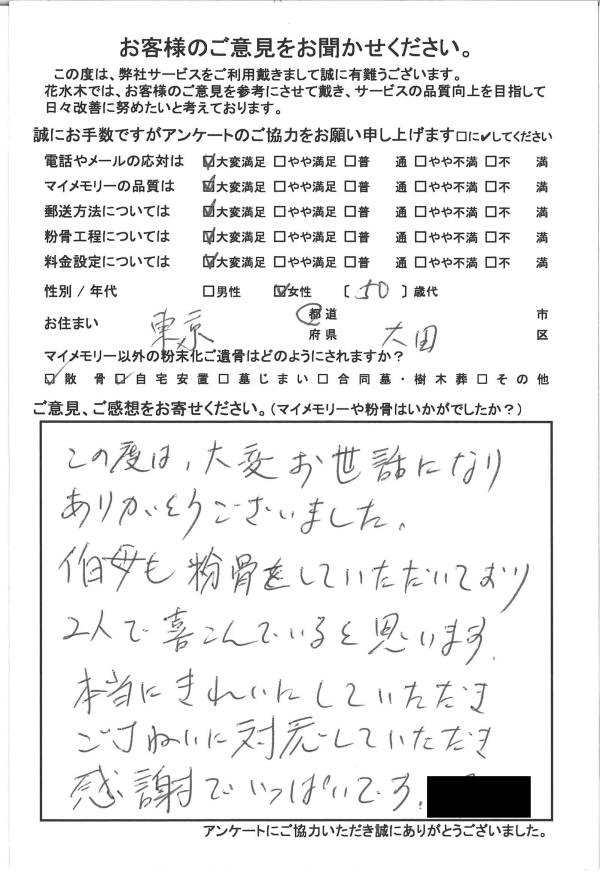 お客様のご意見をお聞かせください。
この度は、弊社サービスをご利用戴きまして誠に有難うございます。
花水木では、お客様のご意見を参考にさせて戴き、サービスの品質向上を目指して
日々改善に努めたいと考えております。
誠にお手数ですがアンケートのご協力をお願い申し上げます□に✔してください
電話やメールの応対は ☑大変満足 □やや満足 □普 通 □やや不満 □不 満
マイメモリーの品質は ☑大変満足 □やや満足 □普 通 □やや不満 □不 満
郵送方法については ☑大変満足 □やや満足 □普 通 □やや不満 □不 満
粉骨工程については ☑大変満足 □やや満足 □普 通 □やや不満 □不 満
料金設定については ☑大変満足 □やや満足 □普 通 □やや不満 □不 満
性別 / 年代 □男性 ☑女性 〔 50 〕歳代
お住まい 東京 都道府県 大田 市区
マイメモリー以外の粉末化ご遺骨はどのようにされますか?
☑散 骨 ☑自宅安置 □墓じまい □合同墓・樹木葬 □その他
ご意見、ご感想をお寄せください。(マイメモリーや粉骨はいかがでしたか?)
この度は、大変お世話になり
ありがとうございました。
伯母も粉骨をしていただいており
2人で喜こんでいると思います。
本当にきれいにしていただき
ごていねいに対応していただき
感謝でいっぱいです。
アンケートにご協力いただき誠にありがとうございました。